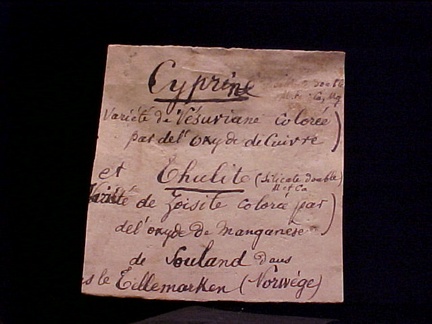 Cyprine
Variété de Vésuviane colorée)
par de l'oxyde de Cuivre
et Thulite (Silicate double
Al et Ca
Variété de Zoisite colorée par)
de l'oxyde de manganèse
de Souland dans
le Tillemarken (Norwége)